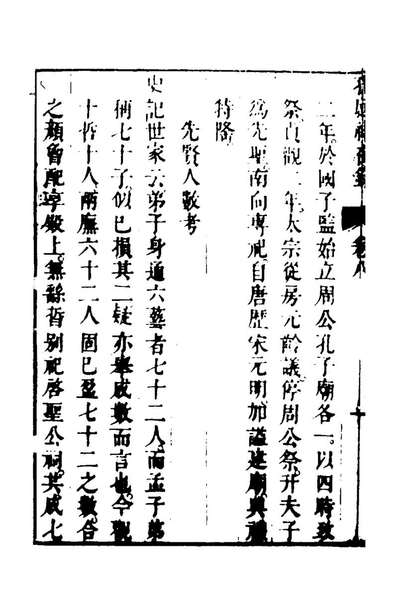 二年於國子監始立周公孔子廟各一以四時致
祭貞觀二年太宗從房元齡議停周公祭升夫子
爲先聖南向專祀自唐歷宋元明加謚建廟典禮
特隆
先賢人數考
史記世家云弟子身通六藝者七十二人而孟子第
稱七十子似已損其二疑亦舉成數而言也今觀
十哲十人兩廡六十二人固已盈七十二之數合
之顏曾配享殿上無繇晳別祀啓聖公祠其成七
卷八
十